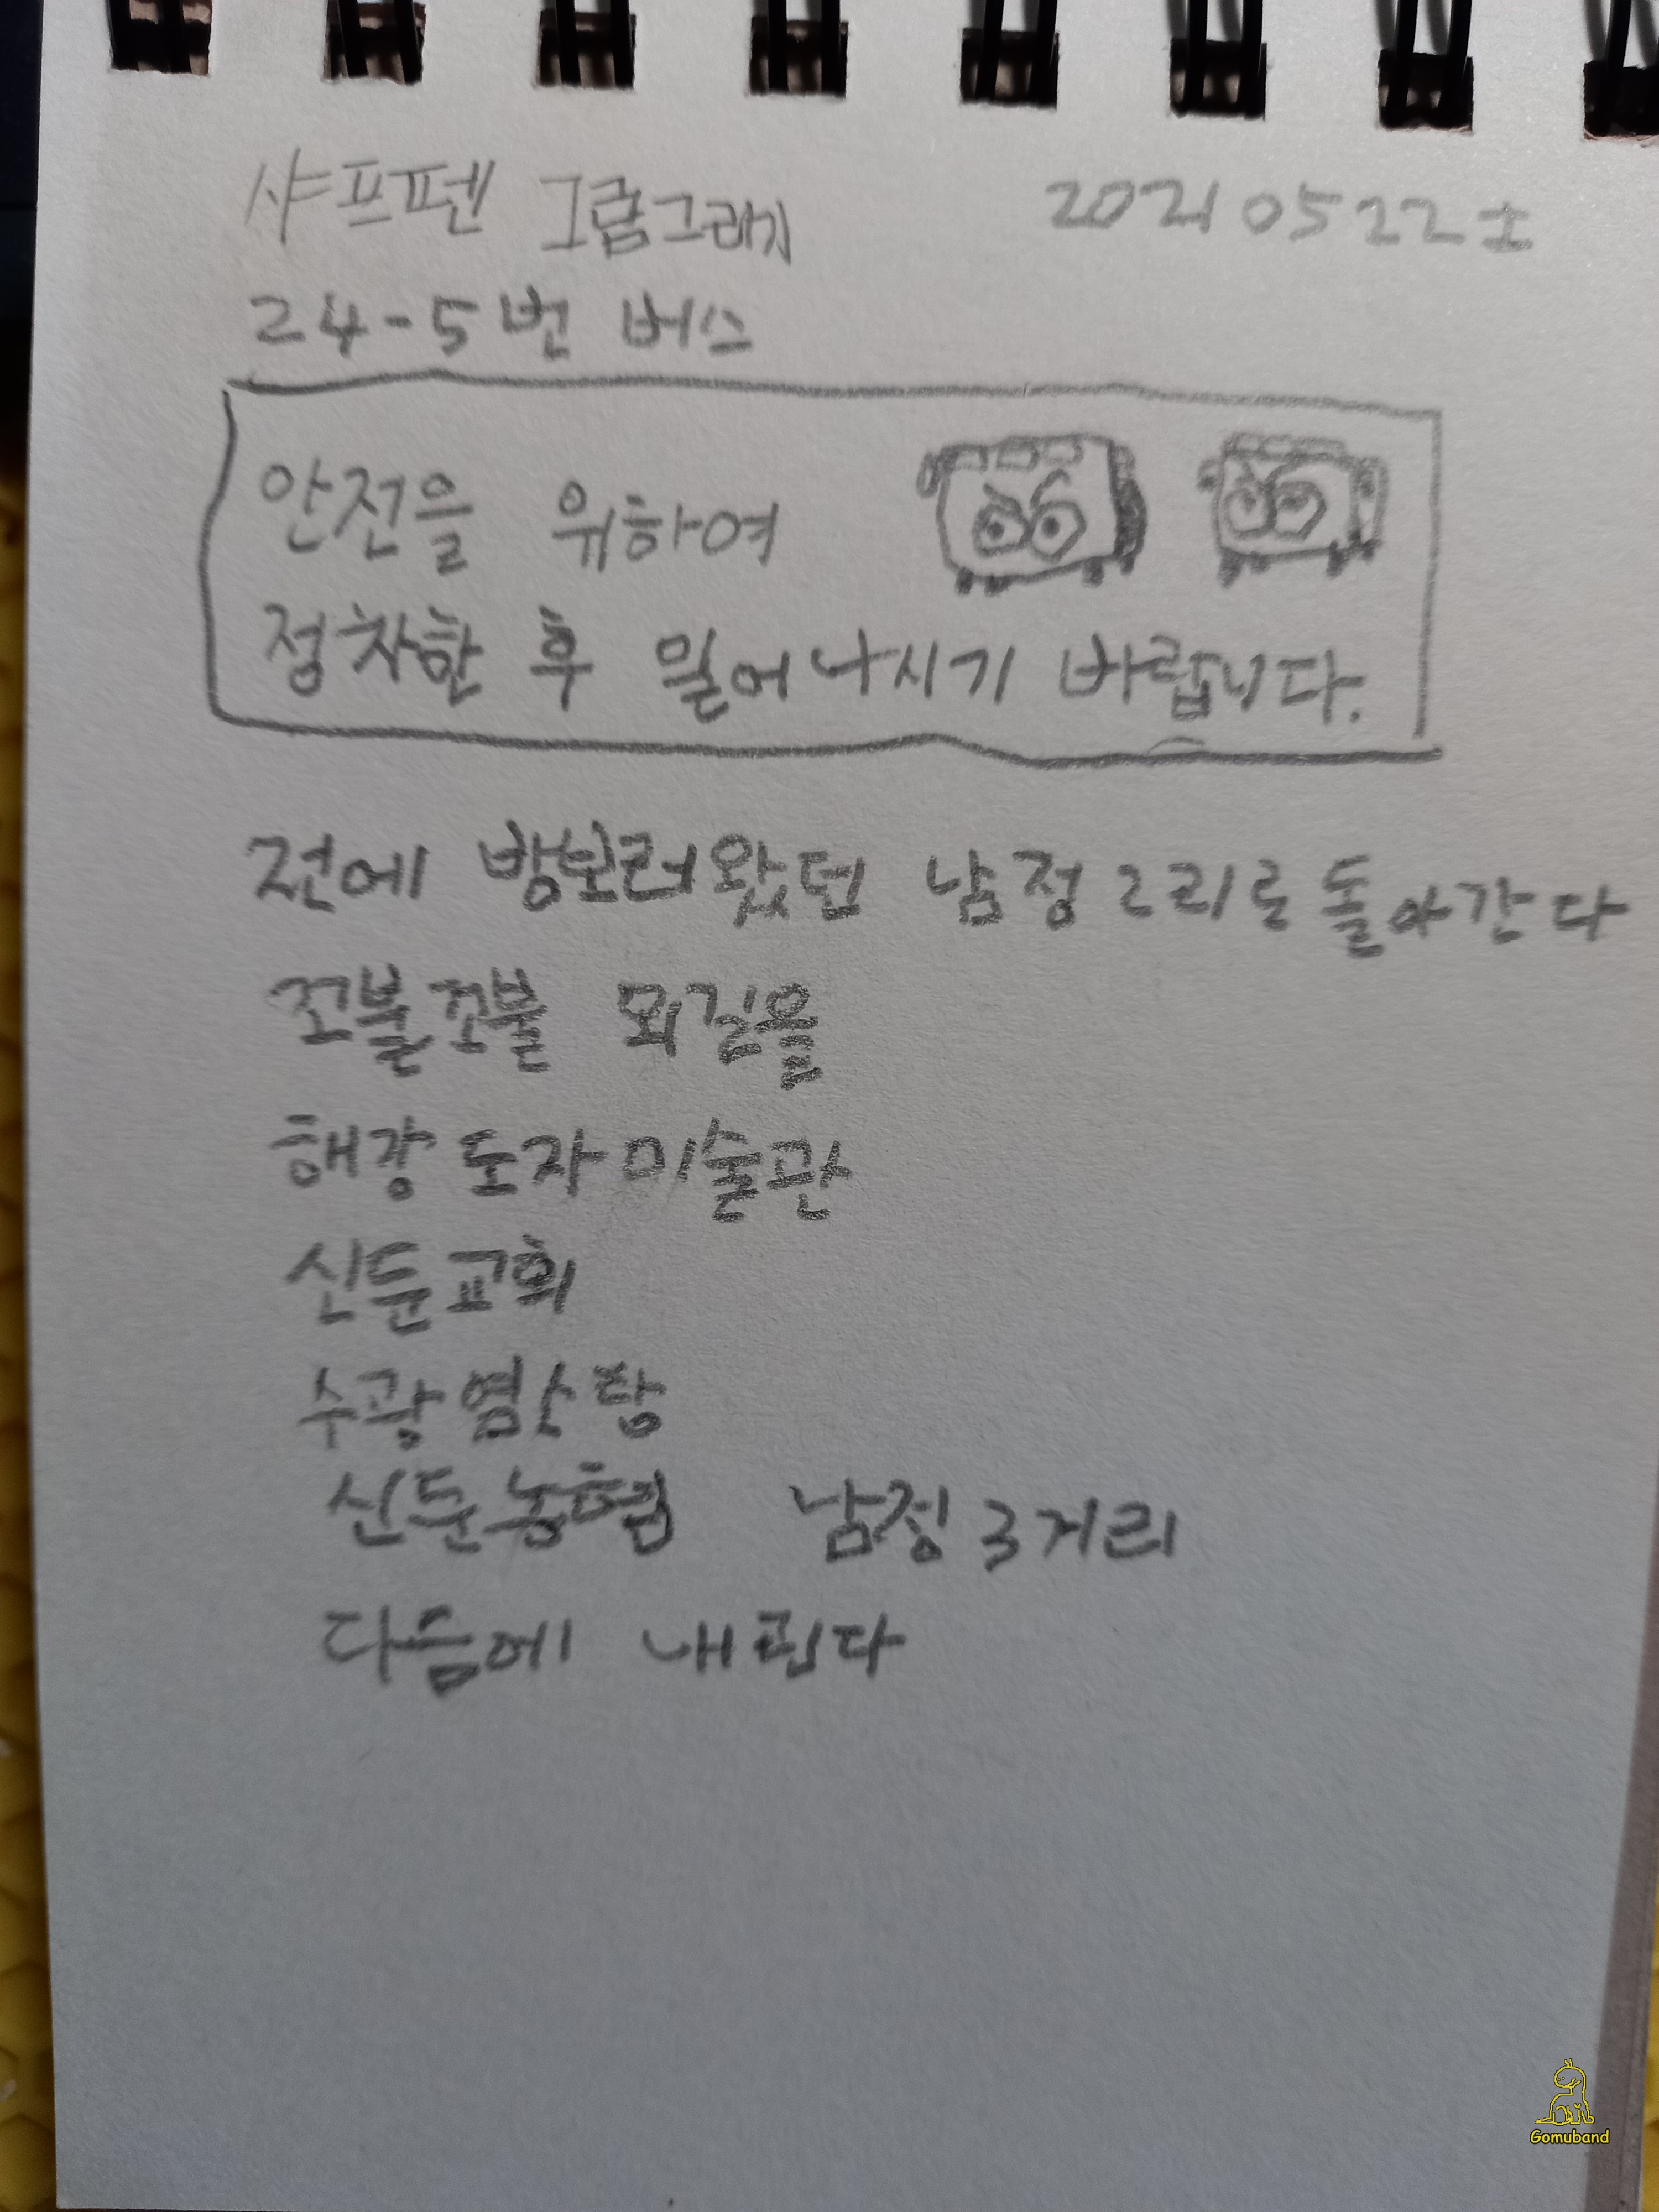 샤프펜 그림그래기 20210522토
24-5번 버스
안전을 위하여
정차한 후 일어나시기 바랍니다.
전에 방보러왔던 남정2리로 돌아간다
꼬불꼬불 뫼길을
해강도자미술관
신둔교회
수광 탕
신둔농협 남정3거리
다음에 내린다
Gomuband